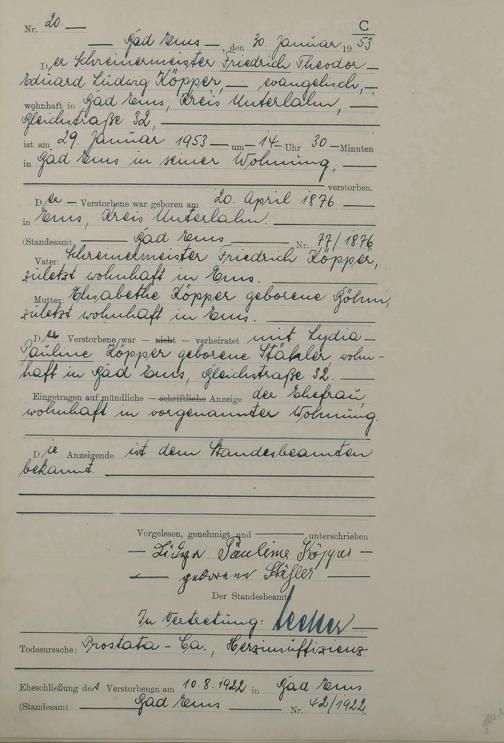 C
Nr. 20 —
— Bad Ems —, den 30. Januar 1953
Der Schreinermeister Friedrich Theodor —
Eduard Ludwig Köpper, — evangelisch, —
wohnhaft in Bad Ems, Kreis Unterlahn, —
Gleichstraße 32,
ist am 29. Januar 1953 — um — 14 — Uhr 30 — Minuten
in Bad Ems in seiner Wohnung, —
verstorben.
Der — Verstorbene war geboren am 20. April 1876 —
in Ems, Kreis Unterlahn. —
(Standesamt — Bad Ems — Nr. 77/1876
Vater: Schreinermeister Friedrich Köpper,
zuletzt wohnhaft in Ems.
Mutter: Elisabethe Köpper geborene Böhm,
zuletzt wohnhaft in Ems.
Der Verstorbene war — nicht — verheiratet mit Lydia —
Pauline Köpper geborene Stähler wohn-
haft in Bad Ems, Gleichstraße 32. —
Eingetragen auf mündliche — schriftliche — Anzeige der Ehefrau,
wohnhaft in vorgenannter Wohnung.
Die Anzeigende ist dem Standesbeamten
bekannt. —
Vorgelesen, genehmigt und — unterschrieben
— Lidya Pauline Köpper —
— geborene Stähler —
Der Standesbeamte
In Vertretung:
Todesursache: Prostata - Ca., Herzinsuffizienz
Eheschließung des Verstorbenen am 10.8.1922 in Bad Ems
(Standesamt — Bad Ems — Nr. 42/1922